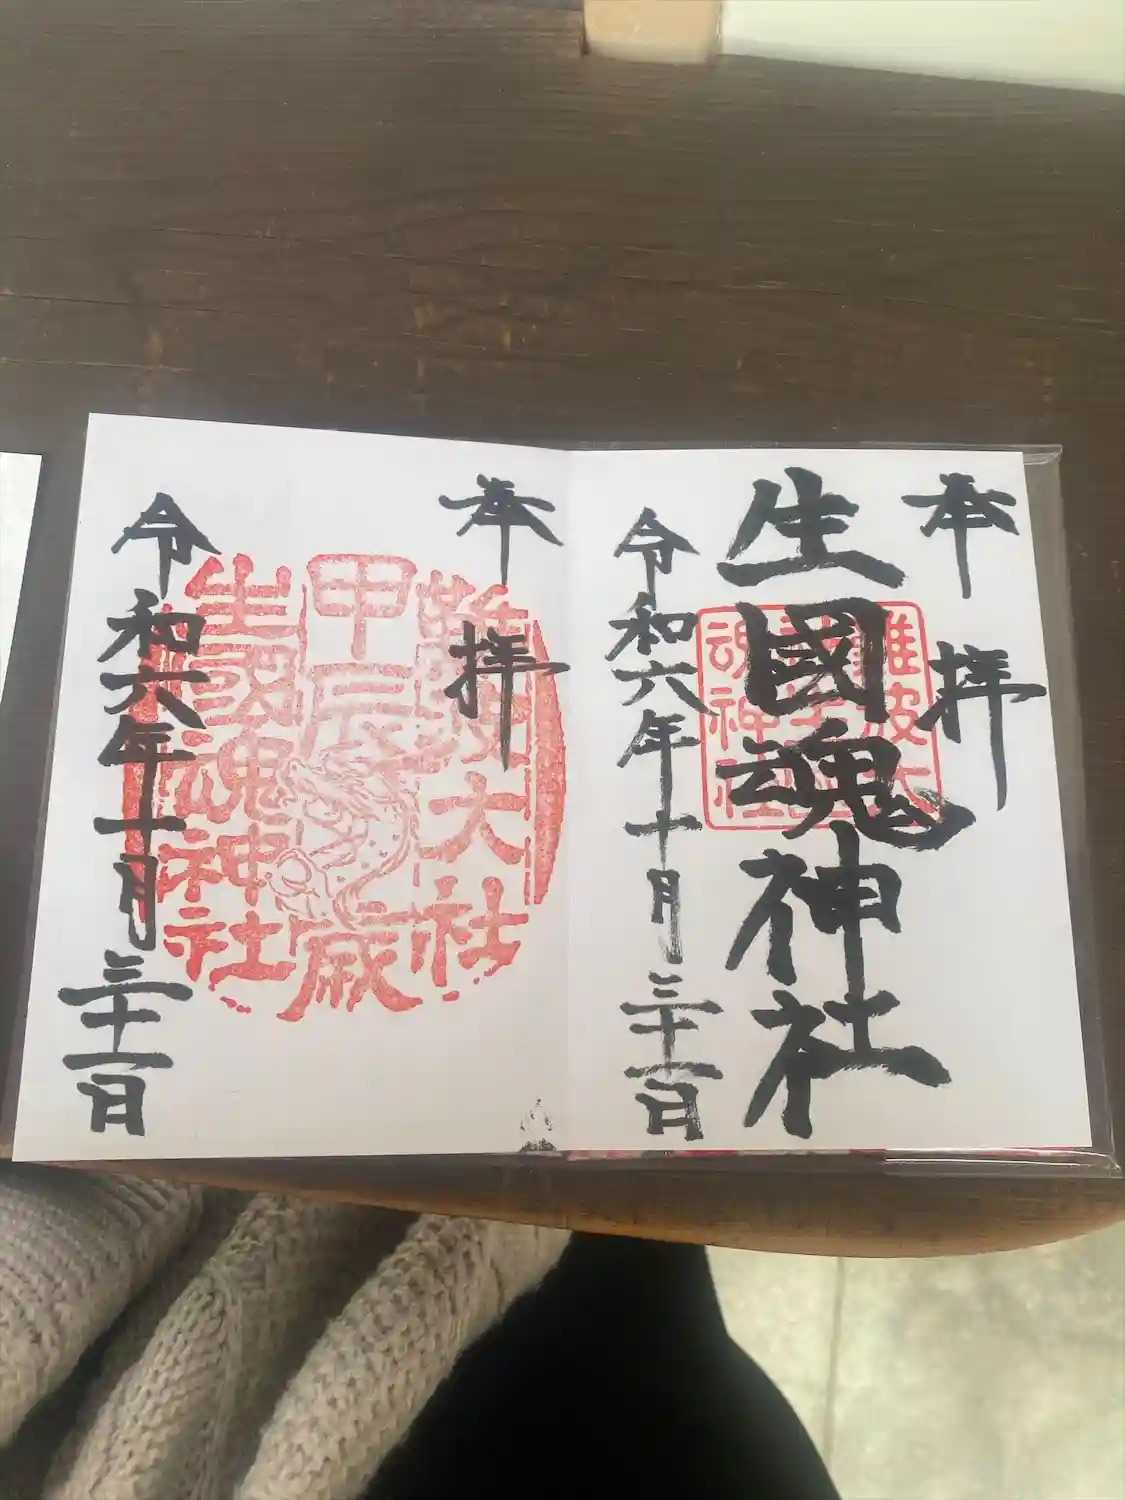 奉拝
生國魂神社
難波大
社生國
魂神社
令和六年十月三十一日
奉拝
難波大社
甲辰歳
生國魂神社
令和六年十月三十一日